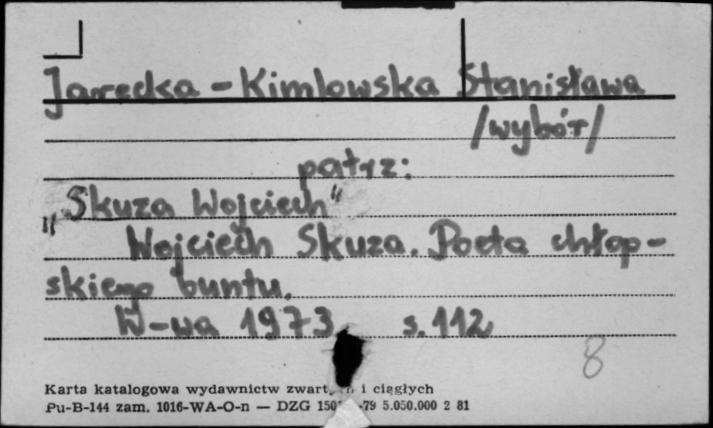 Jarecka-Kimlowska Stanisława
/wybór/
patrz:
„Skuza Wojciech"
Wojciech Skuza. Poeta chłop-
skiego buntu.
W-wa 1973 s. 112
8
Karta katalogowa wydawnictw i ciągłych
Pu-B-144 zam. 1016-WA-O-n — DZG -79 5.050.000 2 81